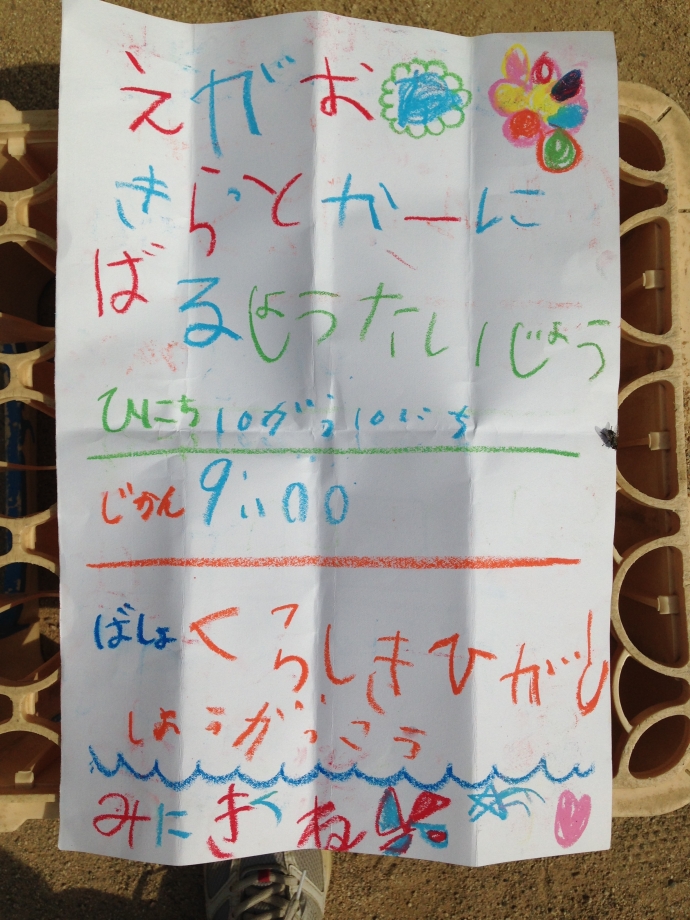 えがお
きらっとかーに
ばるしょうたいじょう
ひにち 10がつ10にち
じかん 9:00
ばしょ くらしきひがし
しょうがっこう
みにきてね